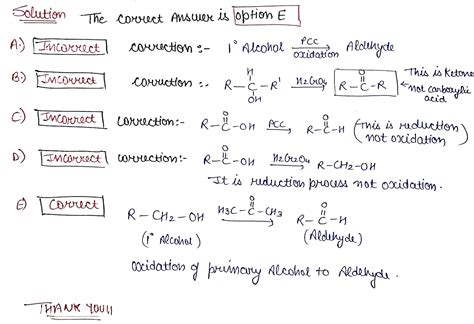 Solution The correct Answer is option E
A:) Incorrect correction :- 1° Alcohol PCC oxidation Aldehyde
B:) Incorrect correction :- R-CH(OH)-R' H2CrO4 R-C(=O)-R This is Ketone not carboxylic acid
C:) Incorrect correction:- R-C(=O)-OH PCC R-C(=O)-H (This is reduction not oxidation)
D:) Incorrect correction:- R-C(=O)-OH H2CrO4 R-CH2-OH
It is reduction process not oxidation.
E) correct R-CH2-OH H3C-C(=O)-CH3 R-C(=O)-H
(1° Alcohol) (Aldehyde)
oxidation of primary Alcohol to Aldehyde.
THANK YOU!!